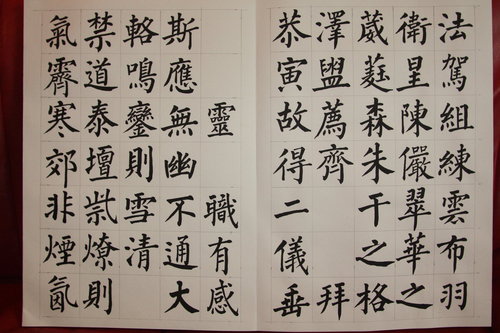 法駕組練雲布羽
衛星陳儼翠華之
葳蕤森朱干之格
澤盥薦齊 拜
恭寅故得二儀垂
靈 職有感
斯應無幽不通大
輅鳴鑾則雪清
禁道泰壇祡燎則
氣霽寒郊非煙氤